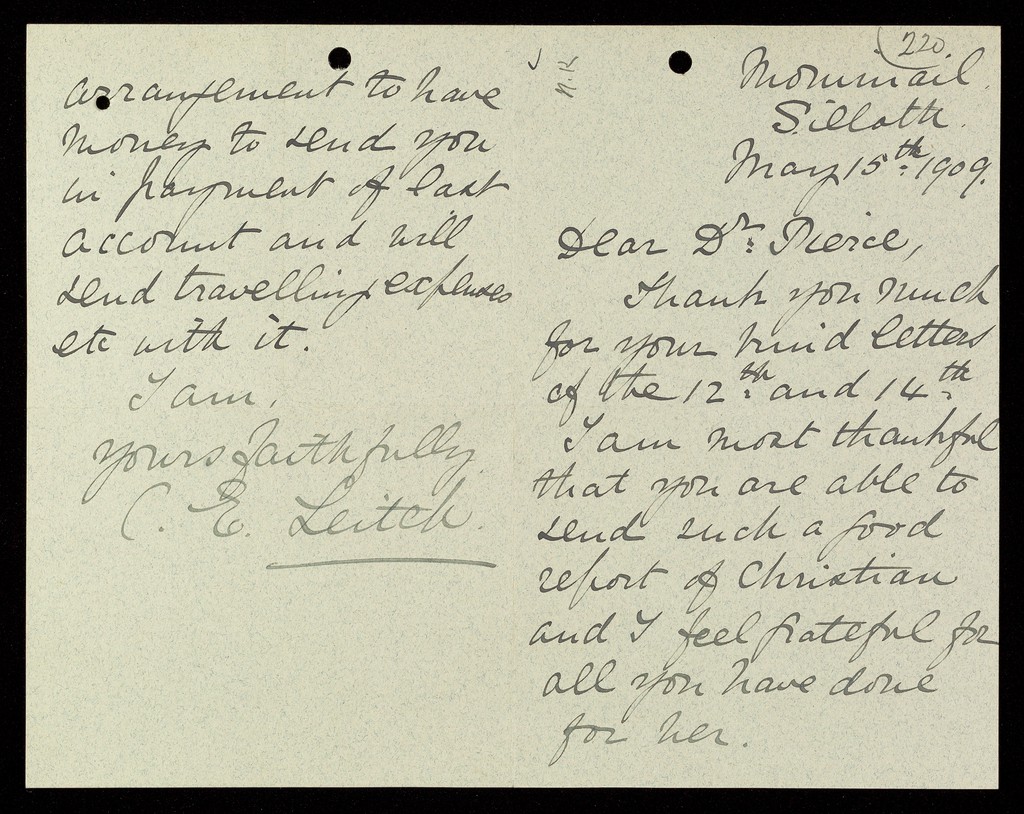 220.
Silloth.
May 15th 1909.
Dear Dr. Pierce,
Thank you much
for your kind letters
of the 12th and 14th
I am most thankful
that you are able to
send such a good
report of Christian
and I feel grateful for
all you have done
for her.
arrangement to have
money to send you
in payment of last
account and will
send travelling expenses
etc with it.
I am,
yours faithfully
C. E. Leitch.